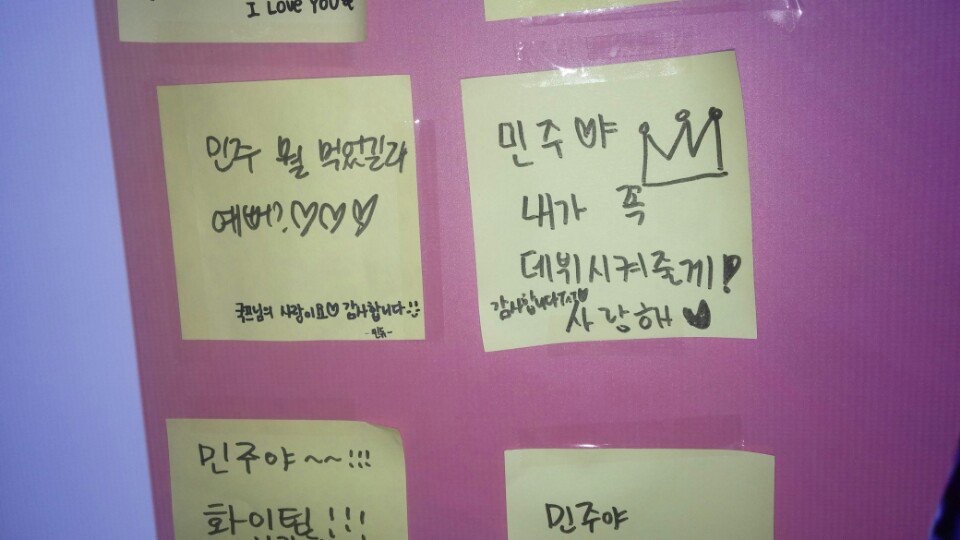 I Love You
민주 뭘 먹었길래
예뻐?♡♡♡
국프님의 사랑이요♡ 감사합니다
-민주-
민주♡야
내가 꼭
데뷔시켜줄게!
감사합니다ㅠㅠ♡
사랑해♥
민주야~~!!!
화이팅!!!
민주야